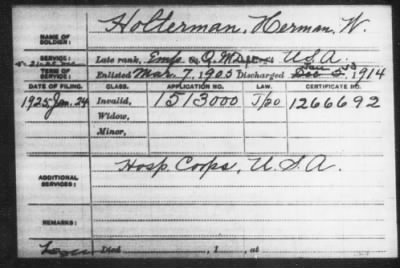 NAME OF SOLDIER: Holterman, Herman, W.
SERVICE: Late rank, Q.M. U.S.A.
TERM OF SERVICE: Enlisted Mar. 7, 1905 Discharged 1914
DATE OF FILING. CLASS. APPLICATION NO. LAW. CERTIFICATE NO.
1925 Jan. 24 Invalid, 1513000 1266692
Widow,
Minor,
ADDITIONAL SERVICES: Hosp. Corps, U.S.A.
REMARKS:
Died , 1 , at